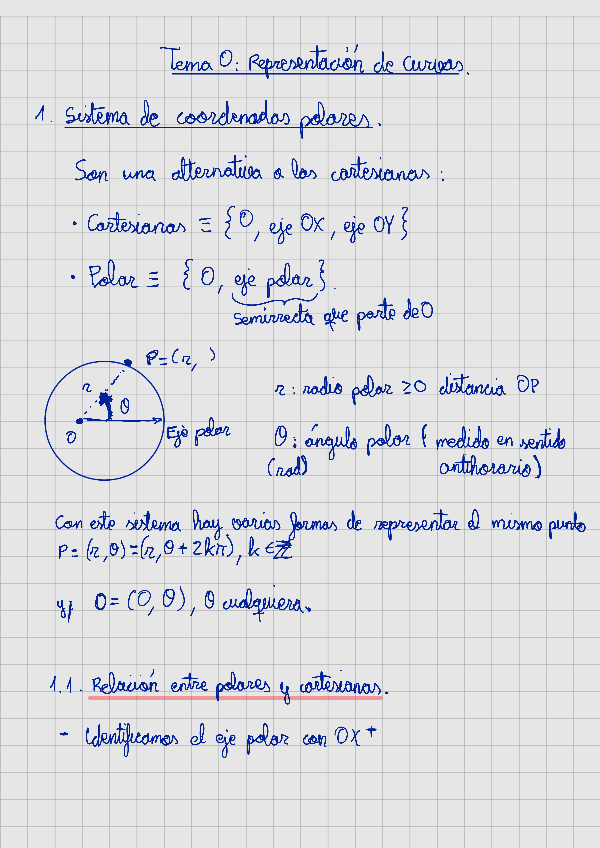 Tema 0: Representación de curvas.
1. Sistema de coordenadas polares.
Son una alternativa a las cartesianas:
· Cartesianas ≡ {O, eje OX, eje OY}
· Polar ≡ {O, eje polar}.
semirrecta que parte de O
P=(r, )
r
θ
O
Eje polar
r: radio polar ≥0 distancia OP
θ: ángulo polar ( medido en sentido
(rad) antihorario)
Con este sistema hay varias formas de representar el mismo punto
P=(r,θ)=(r,θ+2kπ), k∈ℤ
y, O=(0,θ), θ cualquiera.
1.1. Relación entre polares y cartesianas.
- Identificamos el eje polar con OX⁺